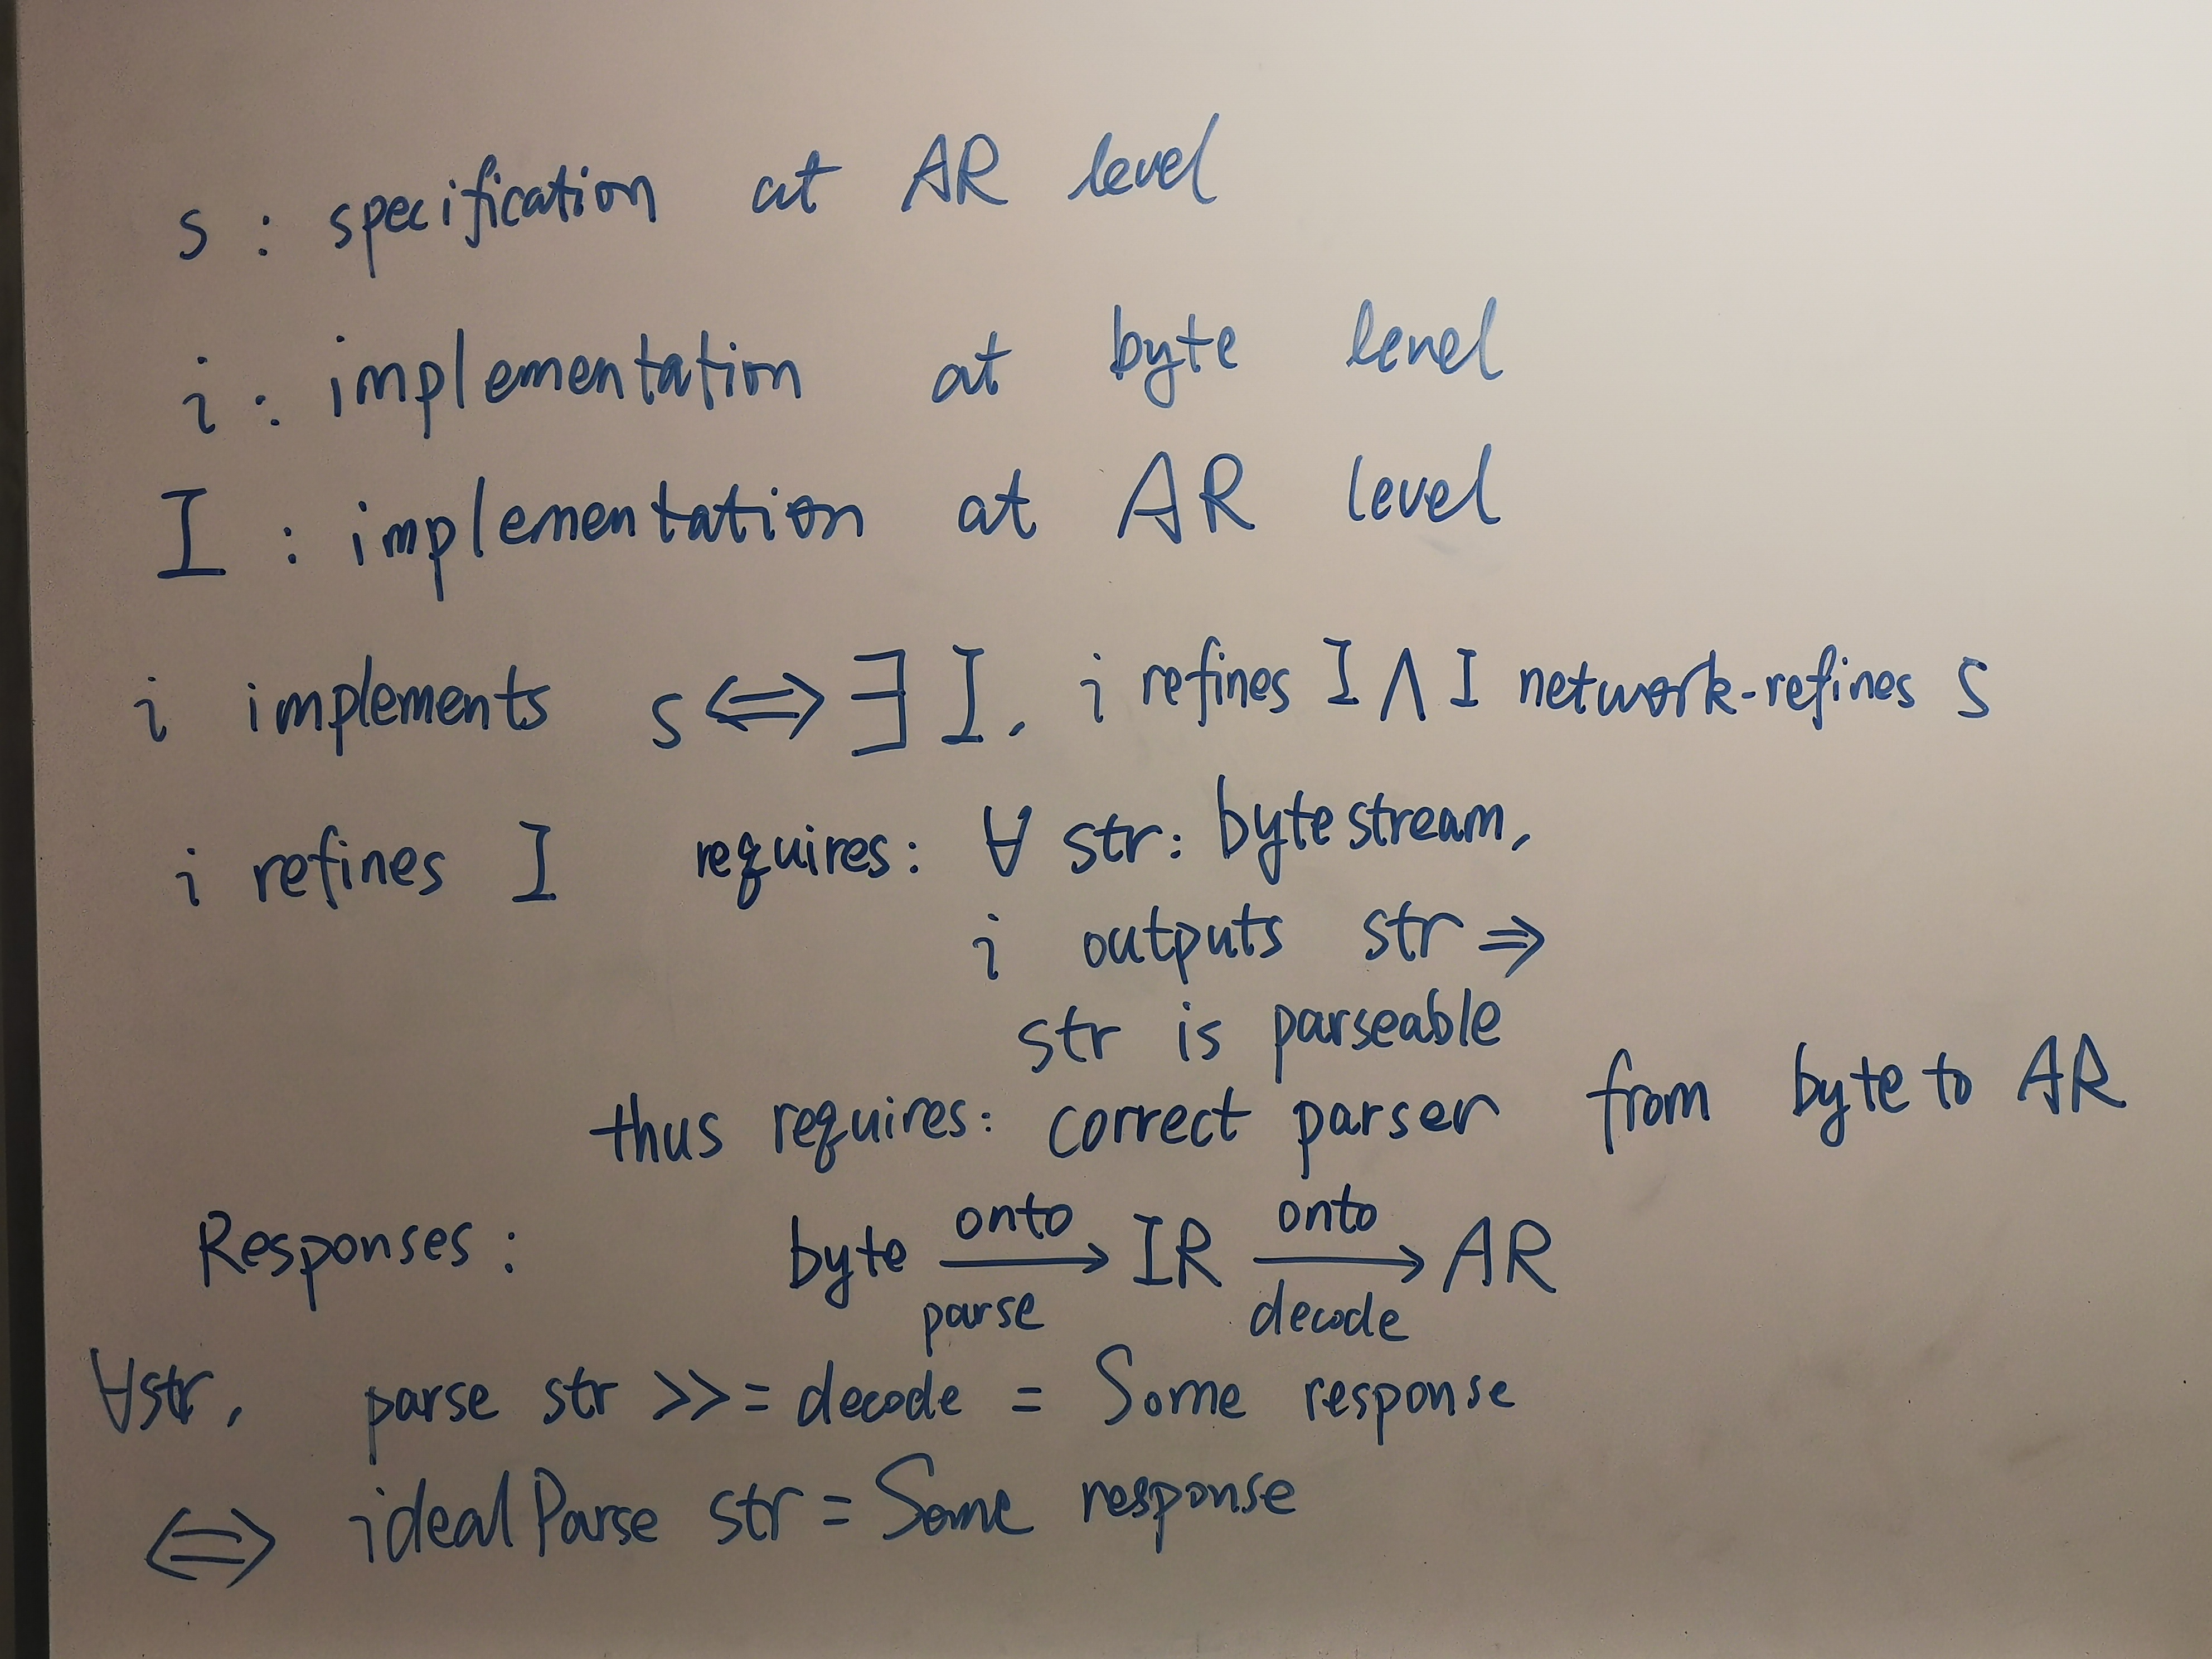 s : specification at AR level
i : implementation at byte level
I : implementation at AR level
i implements s ⟺ ∃ I. i refines I ∧ I network-refines s
i refines I requires: ∀ str: bytestream,
i outputs str ⇒
str is parseable
thus requires: correct parser from byte to AR
onto onto
Responses: byte ⟶ IR ⟶ AR
parse decode
∀str, parse str >>= decode = Some response
⟺ idealParse str = Some response